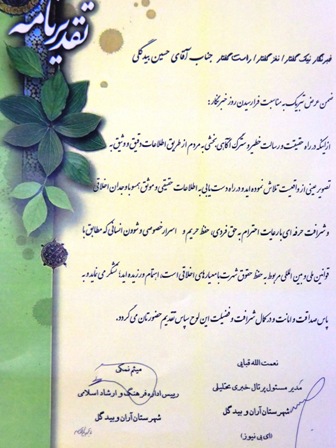 تقدیرنامه
خبرنگار نیک گفتار/ نغز گفتار/ راست گفتار جناب آقای حسین بیدگلی
ضمن عرض تبریک به مناسبت فرارسیدن روز خبرنگار:
ازاینکه در راه حقیقت و رسالت خطیر و سترگ آگاهی بخشی به مردم از طریق اطلاعات دقیق و وثیق به
تصویر عینی از واقعیت تلاش نموده اید و در راه دست یابی به اطلاعات حقیقی و موثق همسو با وجدان اخلاقی
و شرافت حرفه ای با رعایت احترام به حق فردی، حفظ حریم و اسرار خصوصی و شوون انسانی که مطابق با
قوانین ملی و بین المللی مربوط به حفظ حقوق شهرت با معیارهای اخلاقی است، اهتمام ورزیده اید؛ تشکر می نماید و به
پاس صداقت و امانت و در کمال شرافت و فضیلت این لوح سپاس تقدیم حضورتان می گردد.
نعمت الله قبایی
مدیر مسئول پرتال خبری تحلیلی
شهرستان آران و بیدگل
(ای بی نیوز)
میثم نمکی
رییس اداره فرهنگ و ارشاد اسلامی
شهرستان آران و بید گل